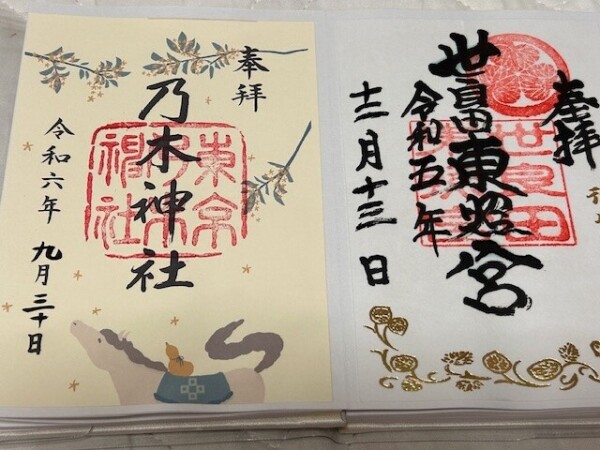 奉拝
東京
乃木
神社
乃木神社
令和六年 九月三十日
奉拝
世良田
世良田東照宮
令和五年
十二月十三日